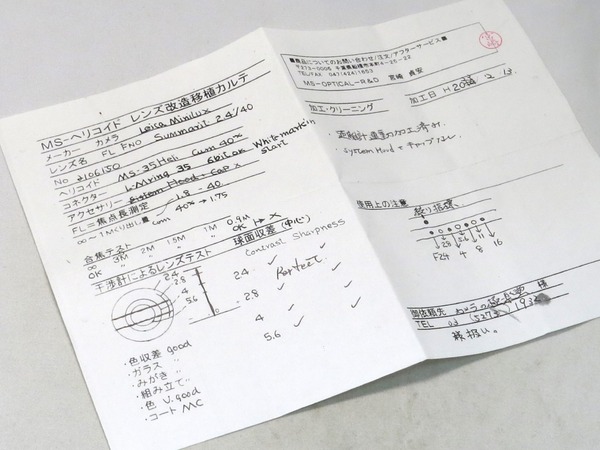 MS-ヘリコイド レンズ改造移植カルテ
メーカー カメラ Leica Minilux
レンズ名 FL FNO Summarit 2.4/40
No 2106150
ヘリコイド MS-35Heli Cum 40%
コネクター L-Mring 35 6bit ok White mark in start
アクセサリー System Hood. Cap x
FL=焦点長測定 1.8 - 40
∞~1Mくり出し量 cum 40% → 1.75
合焦テスト
∞ 3M 2M 1.5M 1M 0.9M
OK 〃 〃 〃 OK
干渉計によるレンズテスト 球面収差(中心)
Contrast Sharpness
2.4
2.8
4
5.6
2.4 ✓ ✓
Perfect
2.8 ✓ ✓
4 ✓ ✓
5.6 ✓ ✓
・色収差 good
・ガラス 〃
・みがき 〃
・組み立て 〃
・色 V.good
・コート MC
■商品についてのお問い合わせ/注文/アフターサービス■
〒273-0006 千葉県船橋市
TEL/FAX
MS-OPTICAL-R&D 宮崎 貞安
加工・クリーニング
加工日 H20 2.13.
・距離計連動加工済み.
・System Hood + キャップなし.
使用上の注意
絞り指標
2.8 5.6 11
F2.4 4 8 16
御依頼先 様
TEL 03